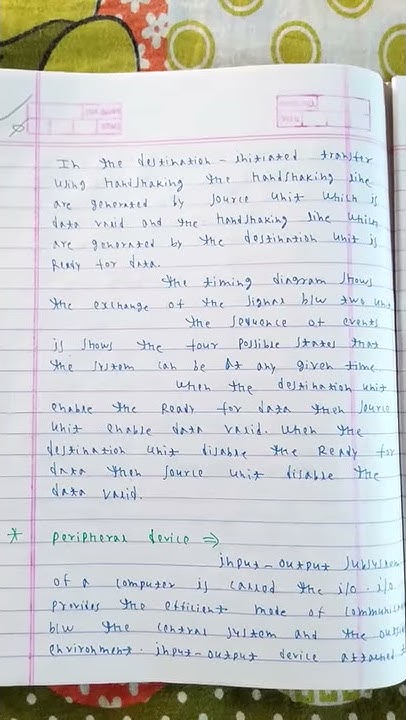 In the destination - initiated transfer
using handshaking the handshaking line
are generated by source unit which is
data vaid and the handshaking line which
are generated by the destination unit is
Ready for data.
the timing diagram shows
the exchange of the signal b/w two unit
the sequence of events
is shows the four possible states that
the system can be at any given time.
when the destination unit
enable the Ready for data then source
unit enable data valid. when the
destination unit disable the Ready for
data then source unit disable the
data valid.
* peripheral device ⇒
input - output subsystem
of a computer is called the i/o. i/o
provides the efficient mode of communica
b/w the central system and the outside
environment. input-output device attached t